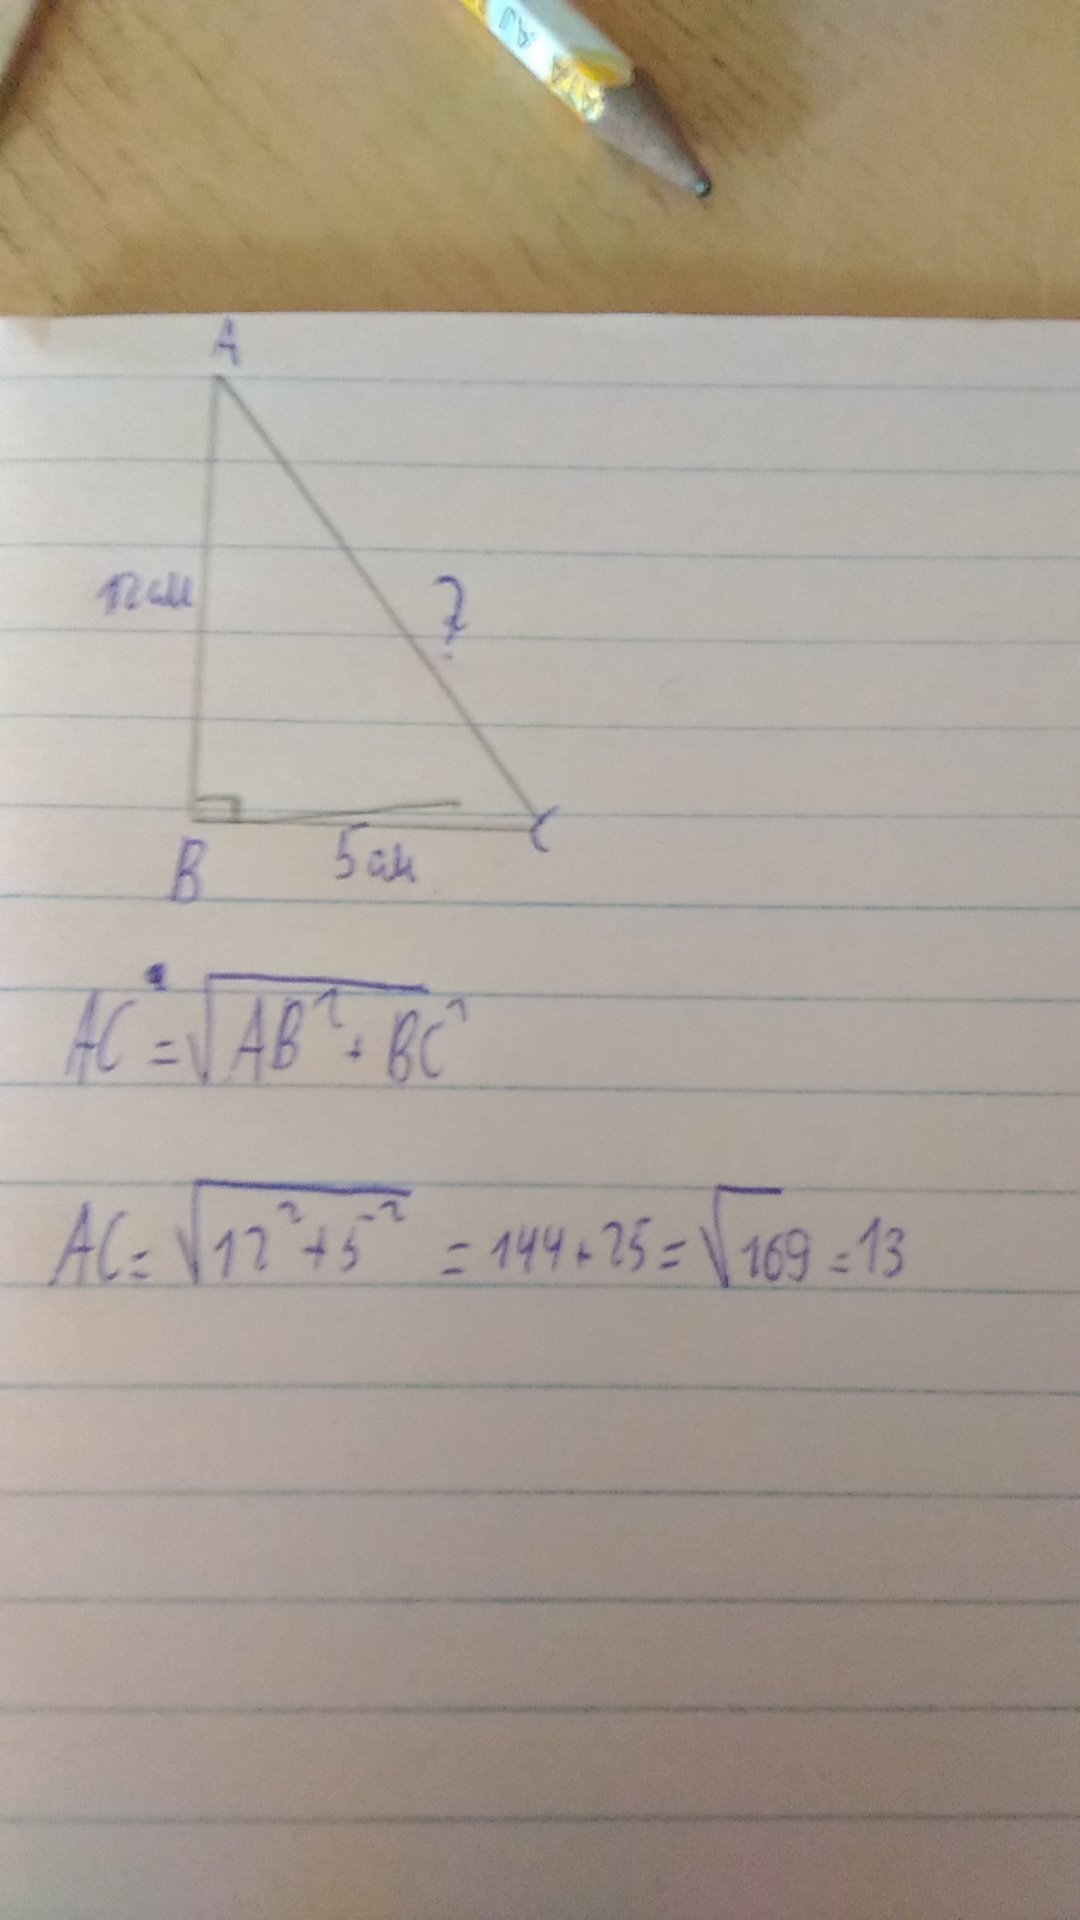 A
12 см
?
B
5 см
C
AC = √AB² + BC²
AC = √12² + 5² = 144 + 25 = √169 = 13